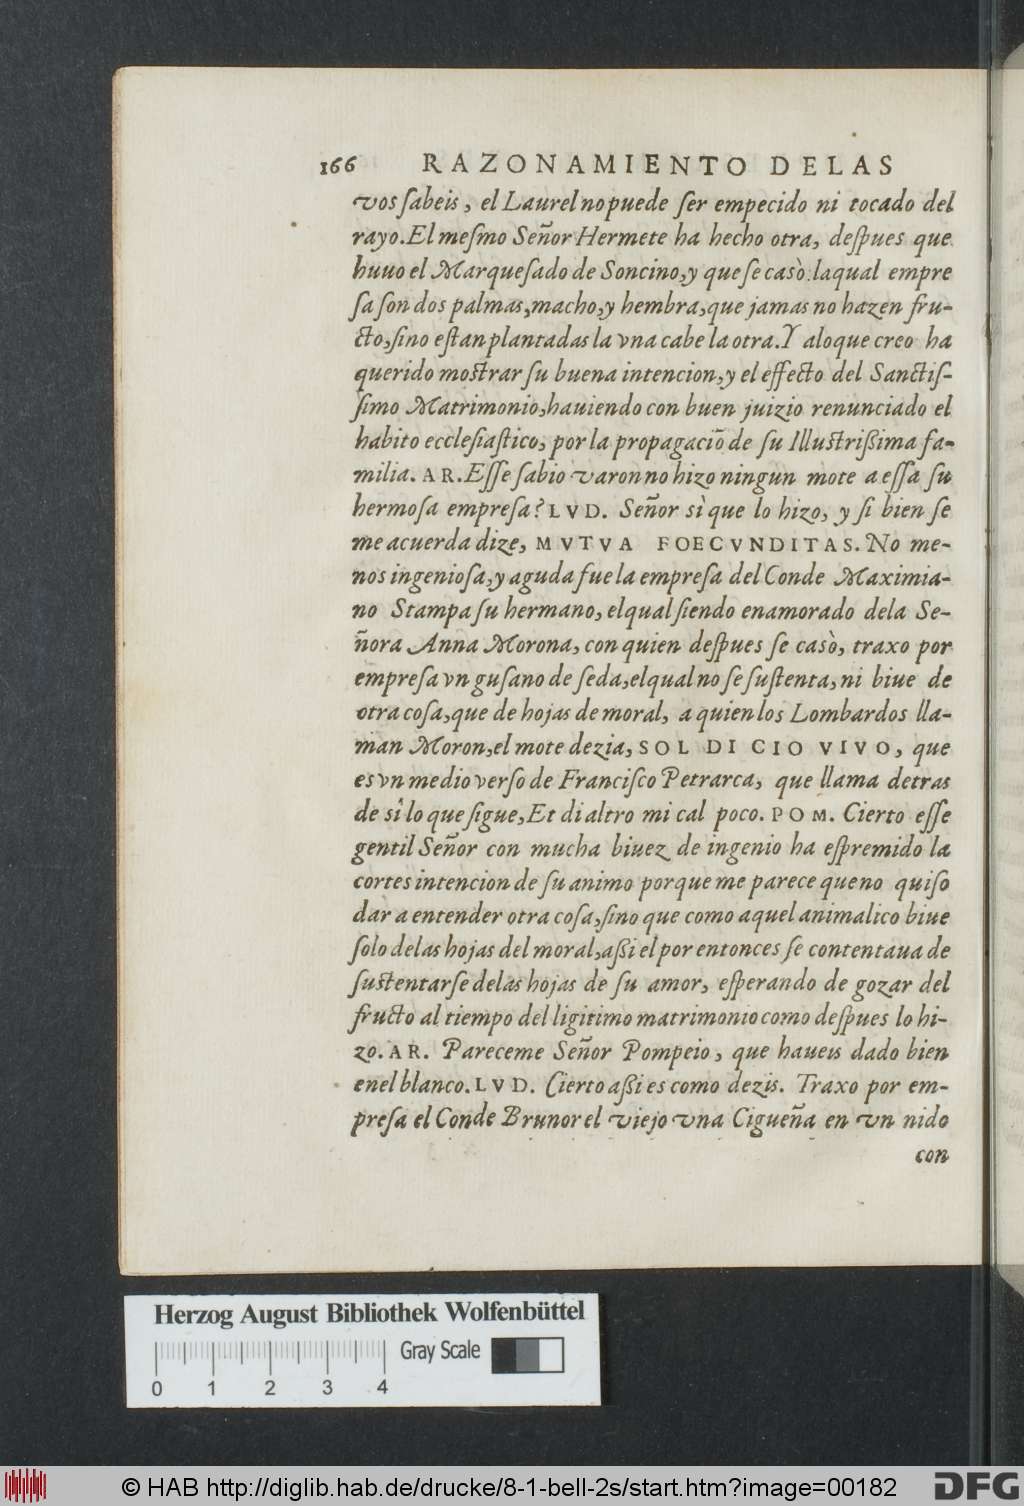 166 RAZONAMIENTO DELAS
vos ſabeis, el Laurel no puede ſer empecido ni tocado del
rayo. El meſmo Señor Hermete ha hecho otra, deſpues que
huuo el Marqueſado de Soncino, y que ſe casò: laqual empre
ſa ſon dos palmas, macho, y hembra, que jamas no hazen fru-
cto, ſino eſtan plantadas la vna cabe la otra. Y aloque creo ha
querido moſtrar ſu buena intencion, y el effecto del Sanctiſ-
ſimo Matrimonio, hauiendo con buen juizio renunciado el
habito eccleſiaſtico, por la propagaciõ de ſu Illuſtrißima fa-
milia. AR. Eſſe ſabio varon no hizo ningun mote a eſſa ſu
hermoſa empreſa? LVD. Señor sì que lo hizo, y ſi bien ſe
me acuerda dize, MVTVA FOECVNDITAS. No me-
nos ingenioſa, y aguda fue la empreſa del Conde Maximia-
no Stampa ſu hermano, elqual ſiendo enamorado dela Se-
ñora Anna Morona, con quien deſpues ſe casò, traxo por
empreſa vn guſano de ſeda, elqual no ſe ſuſtenta, ni biue de
otra coſa, que de hojas de moral, a quien los Lombardos lla-
man Moron, el mote dezia, SOL DI CIO VIVO, que
es vn medio verſo de Franciſco Petrarca, que llama detras
de sì lo que ſigue, Et di altro mi cal poco. POM. Cierto eſſe
gentil Señor con mucha biuez de ingenio ha eſpremido la
cortes intencion de ſu animo porque me parece que no quiſo
dar a entender otra coſa, ſino que como aquel animalico biue
ſolo delas hojas del moral, aßi el por entonces ſe contentaua de
ſuſtentarſe delas hojas de ſu amor, eſperando de gozar del
fructo al tiempo del ligitimo matrimonio como deſpues lo hi-
zo. AR. Pareceme Señor Pompeio, que haueis dado bien
enel blanco. LVD. Cierto aßi es como dezis. Traxo por em-
preſa el Conde Brunor el viejo vna Cigueña en vn nido
con
Herzog August Bibliothek Wolfenbüttel
Gray Scale
0 1 2 3 4
© HAB http://diglib.hab.de/drucke/8-1-bell-2s/start.htm?image=00182
DFG